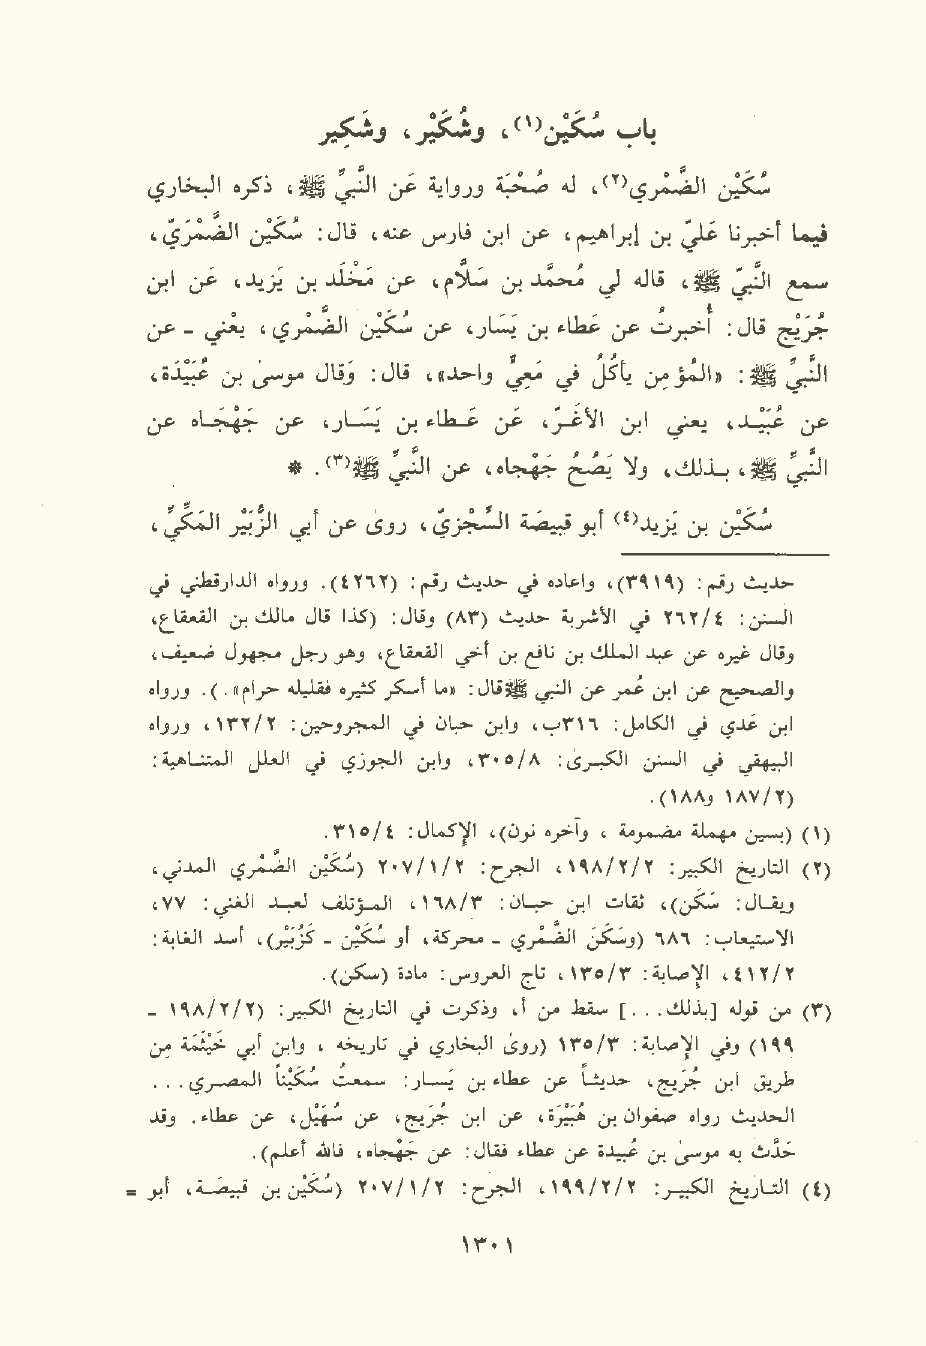 باب سُكَيْن(١)، وشُكَيْر، وشَكِير
سُكَيْن الضَّمْري(٢)، له صُحْبَة ورواية عَن النَّبيِّ ﷺ، ذكره البخاري
فيما أخبرنا عَليّ بن إبراهيم، عن ابن فارس عنه، قال: سُكَيْن الضَّمْرَيّ،
سمع النَّبيّ ﷺ، قاله لي مُحمَّد بن سَلاَّم، عن مَخْلَد بن يَزيد، عَن ابن
جُرَيْج قال: أُخبرتُ عن عَطاء بن يَسَار، عن سُكَيْن الضَّمْري، يعْني - عن
النَّبيِّ ﷺ: «المُؤمِن يأكُلُ في مَعِيٍّ واحد»، قال: وَقال موسىَ بن عُبَيْدَة،
عن عُبَيْد، يعني ابن الأغَرّ، عَن عَطاء بن يَسَار، عن جَهْجَاه عن
النَّبيِّ ﷺ، بذلك، ولا يَصُحّ جَهْجاه، عن النَّبيِّ ﷺ(٣). *
سُكَيْن بن يَزيد(٤) أبو قبيصَة السِّجْزيّ، روى عن أبي الزُّبَيْر المَكِّيّ،
حديث رقم: (٣٩١٩)، واعاده في حديث رقم: (٤٢٦٢). ورواه الدارقطني في
السنن: ٤/٢٦٢ في الأشربة حديث (٨٣) وقال: (كذا قال مالك بن القعقاع،
وقال غيره عن عبد الملك بن نافع بن أخي القعقاع، وهو رجل مجهول ضعيف،
والصحيح عن ابن عُمر عن النبي ﷺقال: «ما أسكر كثيره فقليله حرام».). ورواه
ابن عَدي في الكامل: ٣١٦ب، وابن حبان في المجروحين: ٢/١٣٢، ورواه
البيهقي في السنن الكبرى: ٨/٣٠٥، وابن الجوزي في العلل المتناهية:
(٢/١٨٧ و١٨٨).
(١) (بسين مهملة مضمومة ، وآخره نون)، الإكمال: ٤/٣١٥.
(٢) التاريخ الكبير: ٢/٢/١٩٨، الجرح: ٢/١/٢٠٧ (سُكَيْن الضَّمْري المدني،
ويقال: سَكَن)، ثقات ابن حبان: ٣/١٦٨، المؤتلف لعبد الغني: ٧٧،
الاستيعاب: ٦٨٦ (وسَكَن الضَّمْري - محركة، أو سُكَيْن - كزُبَيْر)، أسد الغابة:
٢/٤١٢، الإصابة: ٣/١٣٥، تاج العروس: مادة (سكن).
(٣) من قوله [بذلك. . . ] سقط من أ، وذكرت في التاريخ الكبير: (٢/٢/١٩٨ -
١٩٩) وفي الإصابة: ٣/١٣٥ (روى البخاري في تاريخه ، وابن أبي خَيْثَمة مِن
طريق ابن جُرَيج، حديثاً عن عطاء بن يَسار: سمعتُ سُكَيْناً المصري. . .
الحديث رواه صفوان بن هُبَيْرَة، عن ابن جُرَيج، عن سُهَيْل، عن عطاء. وقد
حَدَّث به موسىَ بن عُبيدة عن عطاء فقال: عن جَهْجَاه، فالله أعلم).
(٤) التاريخ الكبير: ٢/٢/١٩٩، الجرح: ٢/١/٢٠٧ (سُكَيْن بن قبيصَة، أبو =
١٣٠١